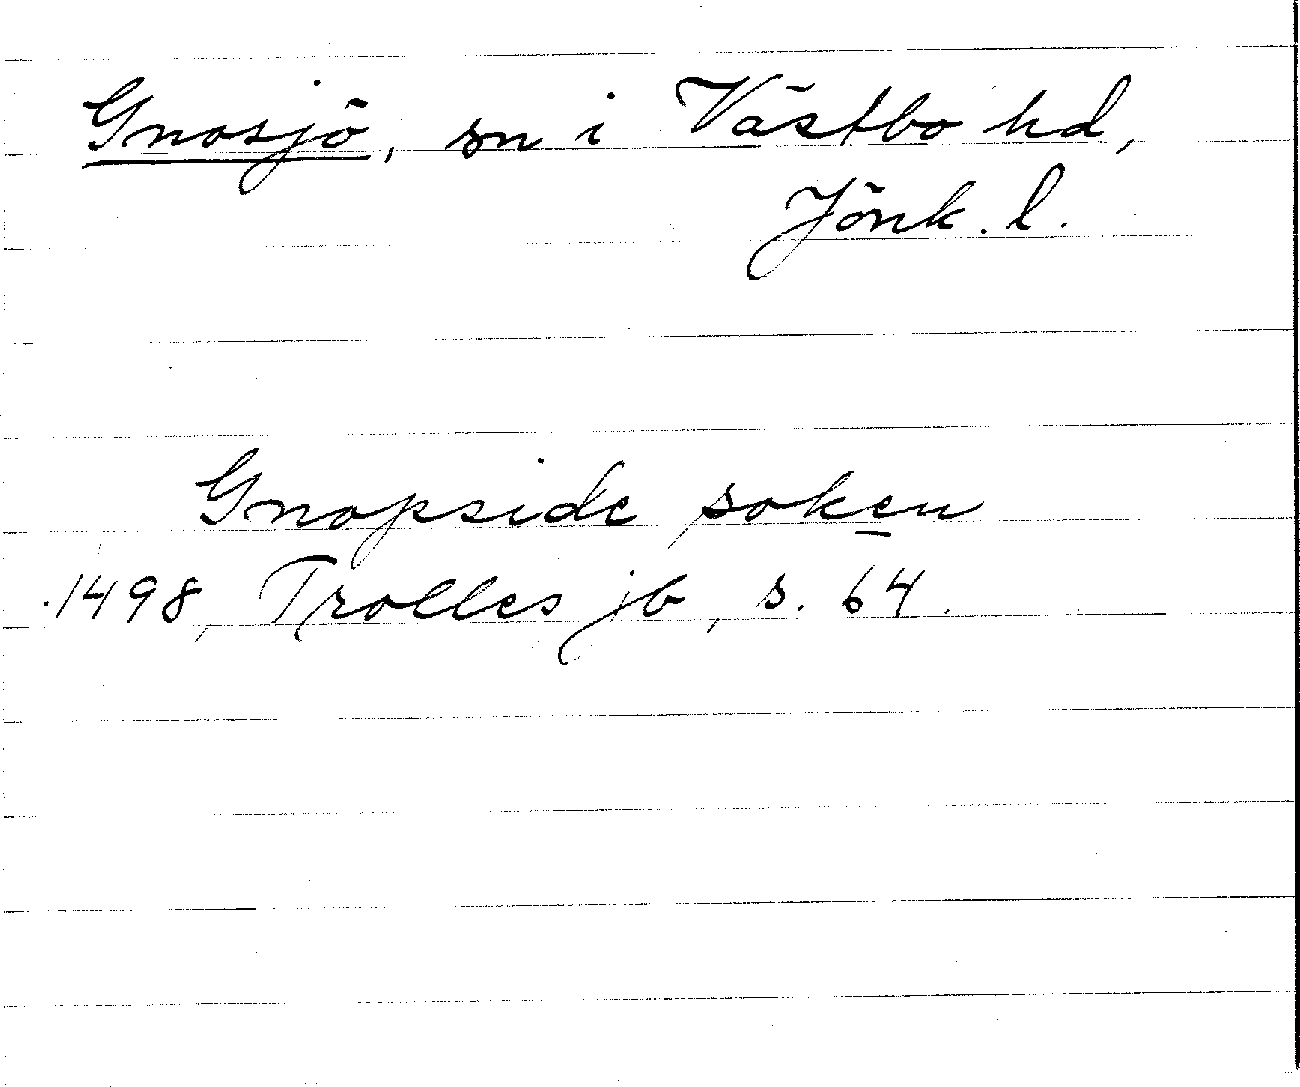 Gnosjö, sn i Västbo hd,
Jönk. l.
Gnopside soken
1498, Trolles jb, s. 64.